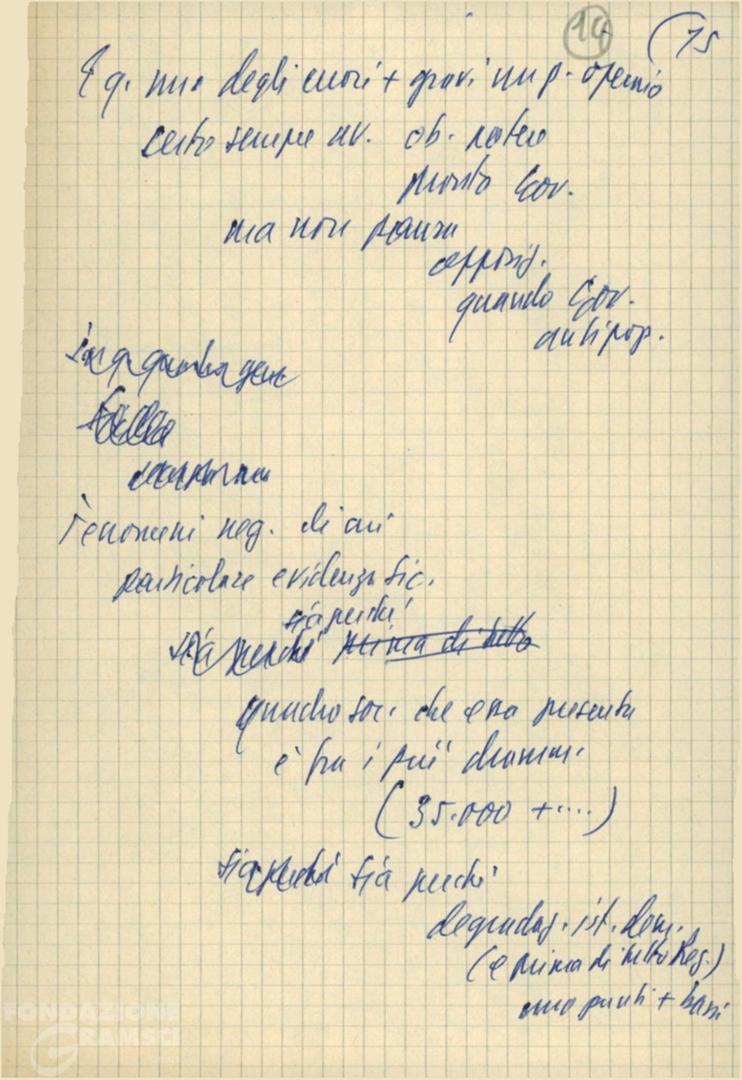 14 (15
E q. uno degli errori + gravi mp. operaio
certo sempre av. ob. potere
pronto Gov.
ma non paura
opposiz.
quando Gov.
antipop.
Fenomeni neg. di cui
particolare evidenza Sic.
sia perché
sia perché prima di tutto
quadro soc. che essa presenta
è fra i più dramm.
(35.000 +....)
sia perché sia perché
degradaz. ist. dem.
(e prima di tutto Reg.)
uno punti + bassi
FONDAZIONE
GRAMSCI